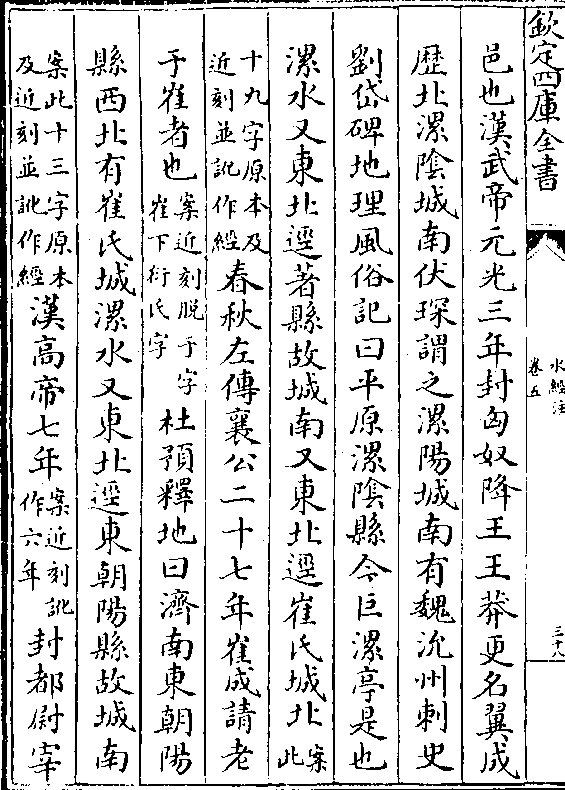 欽定四庫全書
水經注
卷五
三十八
邑也漢武帝元光三年封匈奴降王王莽更名翼成
歴北漯陰城南伏琛謂之漯陽城南有魏沇州刺史
劉岱碑地理風俗記曰平原漯陰縣今巨漯亭是也
漯水又東北逕著縣故城南又東北逕崔氏城北案此
十九字原本及近刻並訛作經春秋左傳襄公二十七年崔成請老
于崔者也案近刻脱于字崔下衍氏字杜預釋地曰濟南東朝陽
縣西北有崔氏城漯水又東北逕東朝陽縣故城南
案此十三字原本及近刻並訛作經漢高帝七年案近刻訛作六年封都尉宰